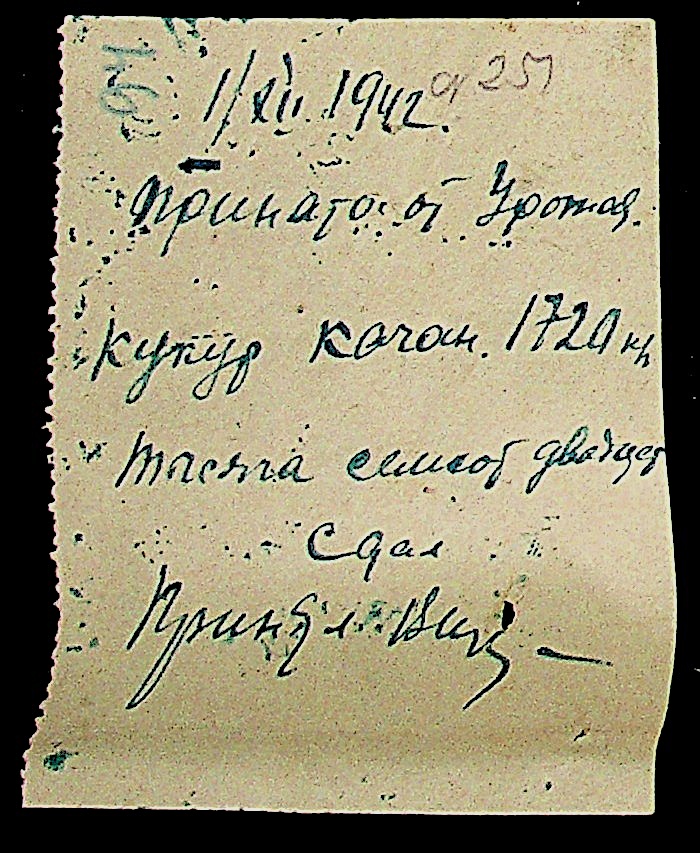 251
1/XII. 1942.
Принято от Урожая.
кукур качан. 1720 кг
тисяча семсот двадцат
Сдал
Принял